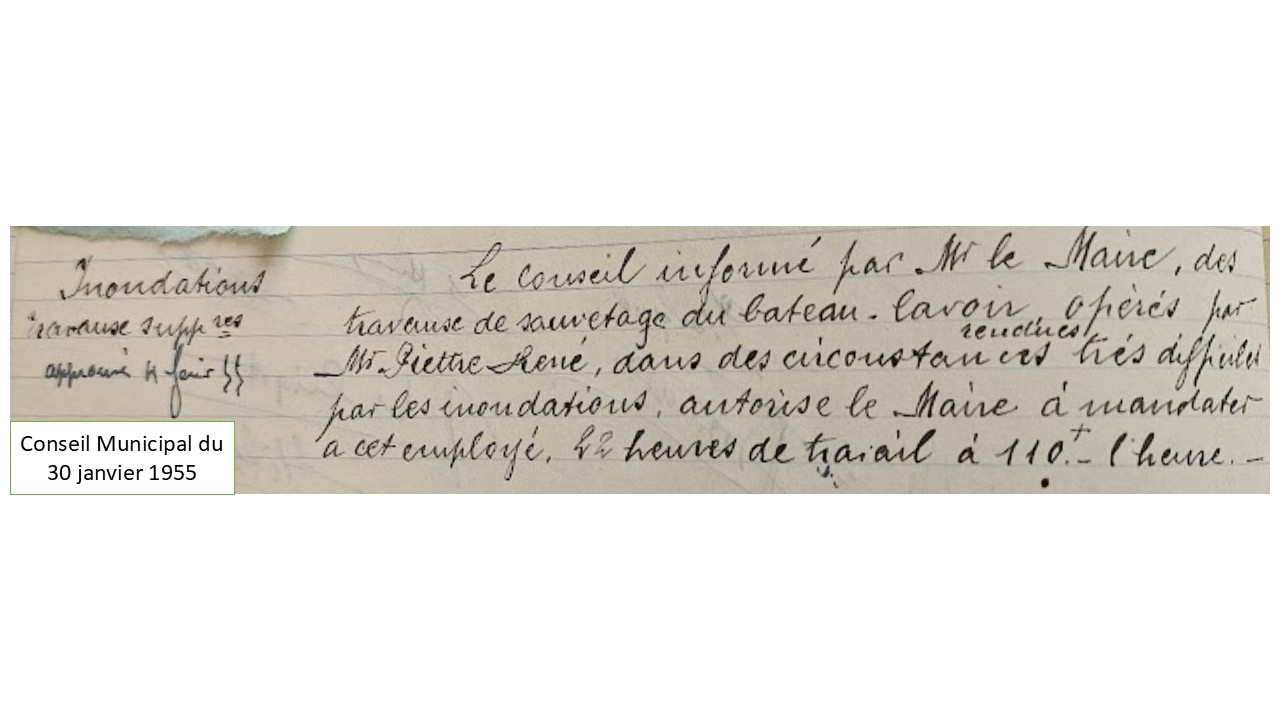 Inondations
travause supp res
approuvé 4 févr 55
Conseil Municipal du
30 janvier 1955
Le Conseil informé par Mr le Maire, des
travause de sauvetage du bateau-lavoir, opérés par
rendues
Mr Piettre René, dans des circonstances trés difficiles
par les inondations, autorise le Maire à mandater
a cet employé, 22 heures de travail à 110.- l'heure.-